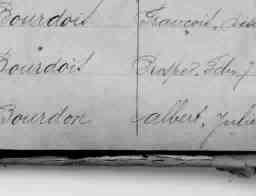 Bourdois François,
Bourdois Prosper,
Bourdon Albert, Julie